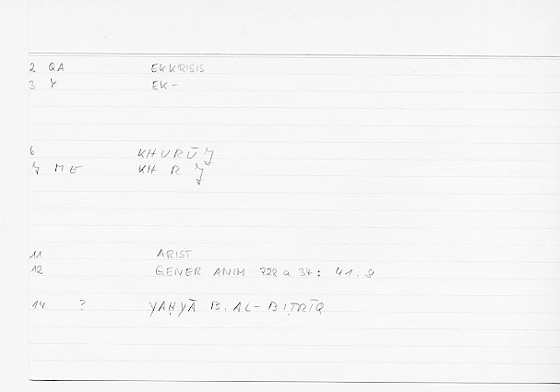 2 QA EKKRISIS
3 Y EK-
6 KHURŪJ
7 ME KH R J
11 ARIST
12 GENER ANIM 728 a 34: 41.8
14 ? YAḤYĀ B. AL-BIṬRĪQ